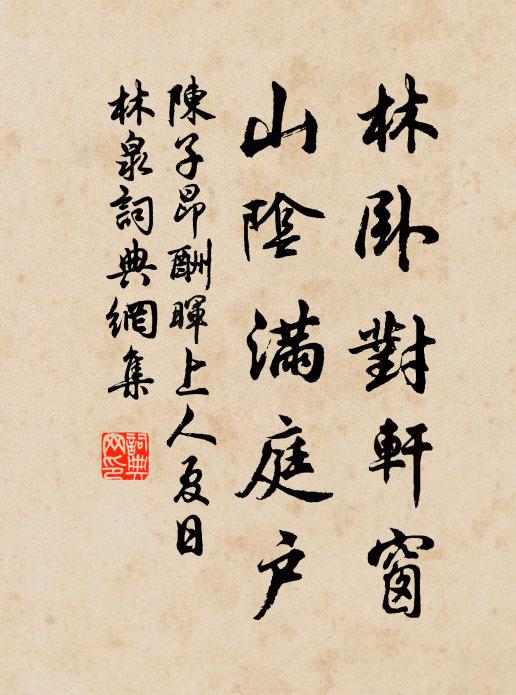 林卧對軒窗
山陰滿庭户
陳子昂酬暉上人夏日
林泉詞典網集
詞典网印